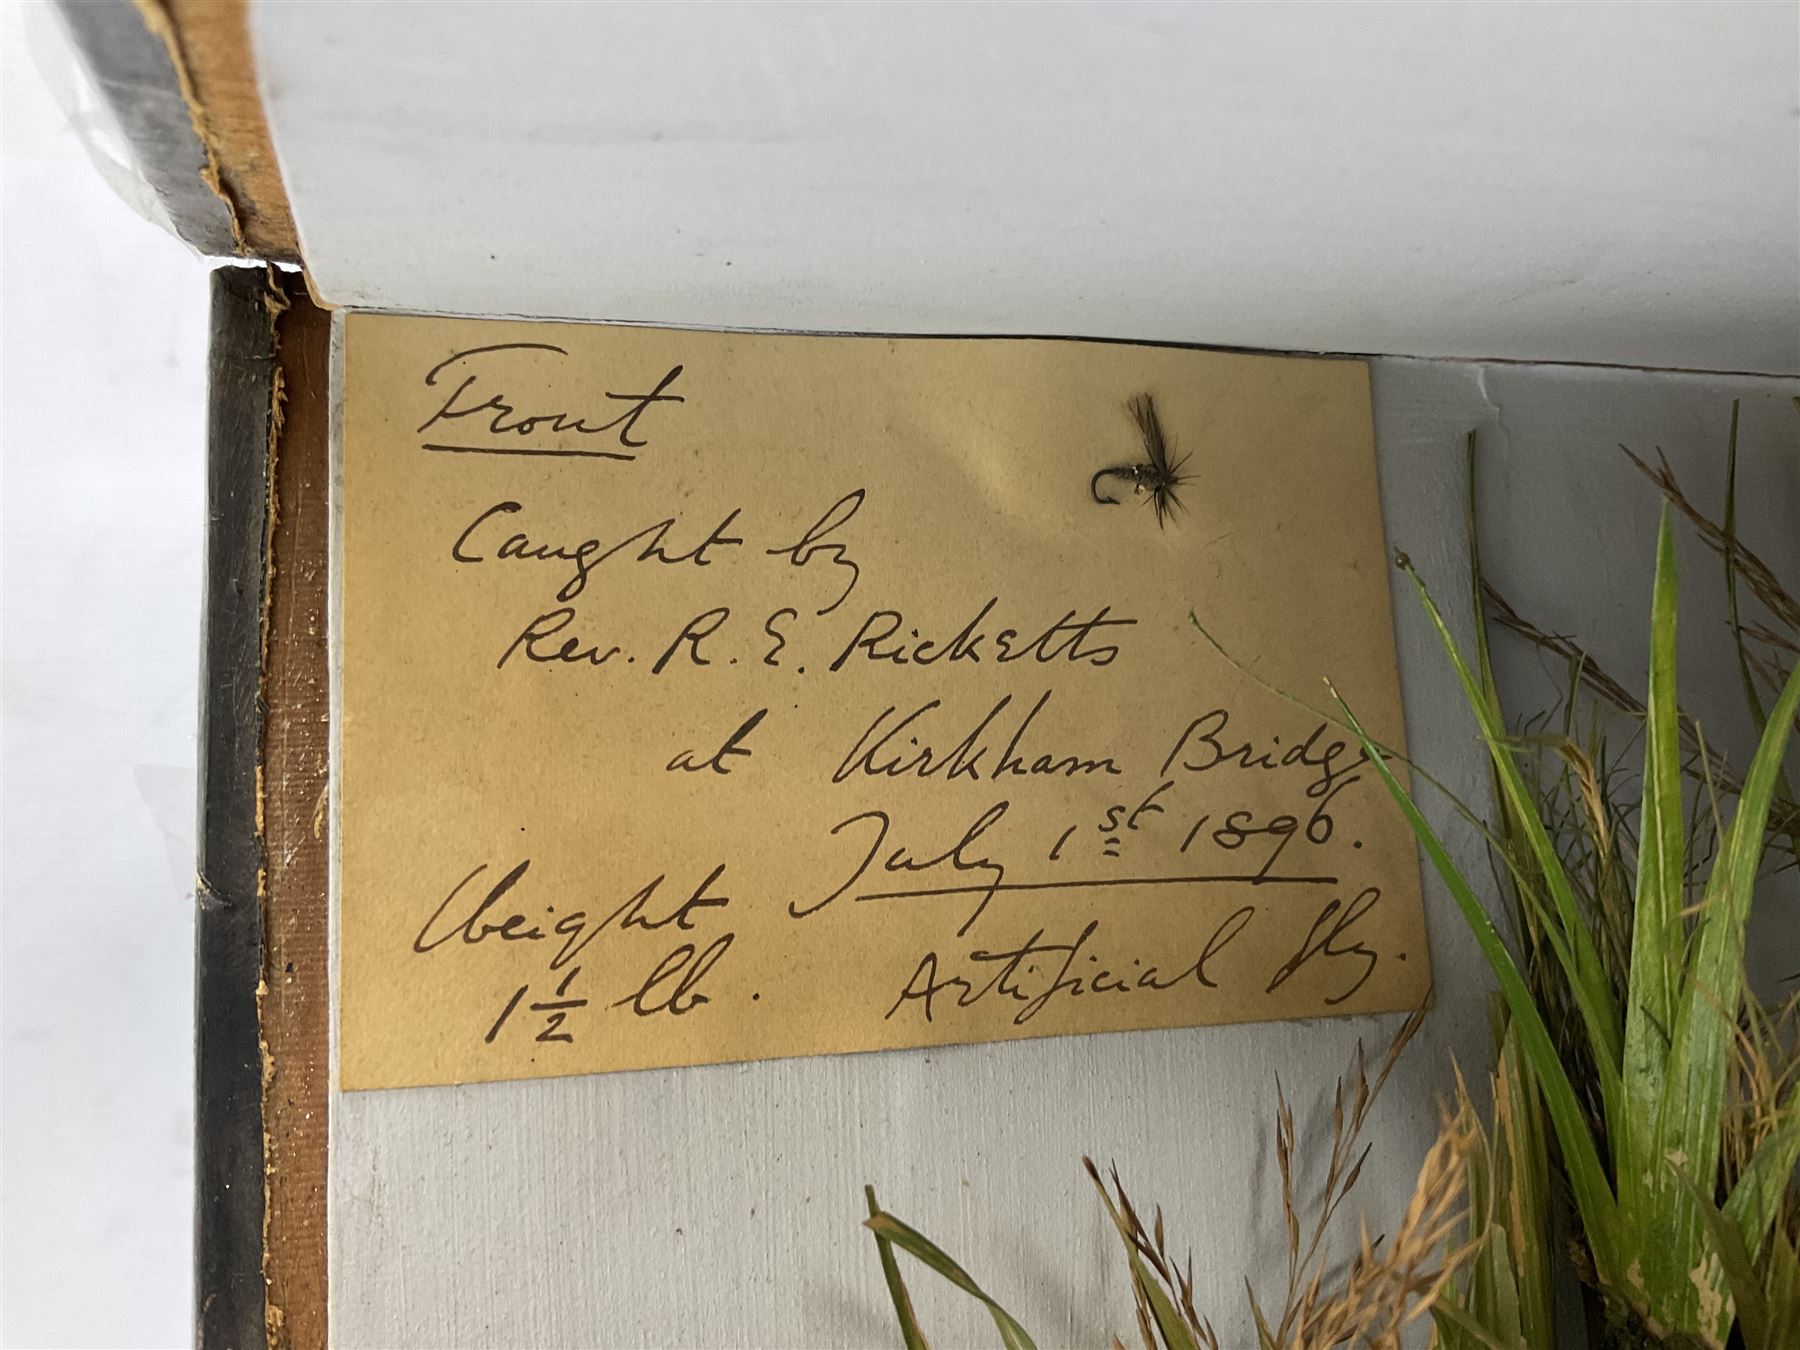 Trout
Caught by
Rev. R. E. Ricketts
at Kirkham Bridge
July 1st 1896.
Weight
1 1/2 lb. Artificial fly.